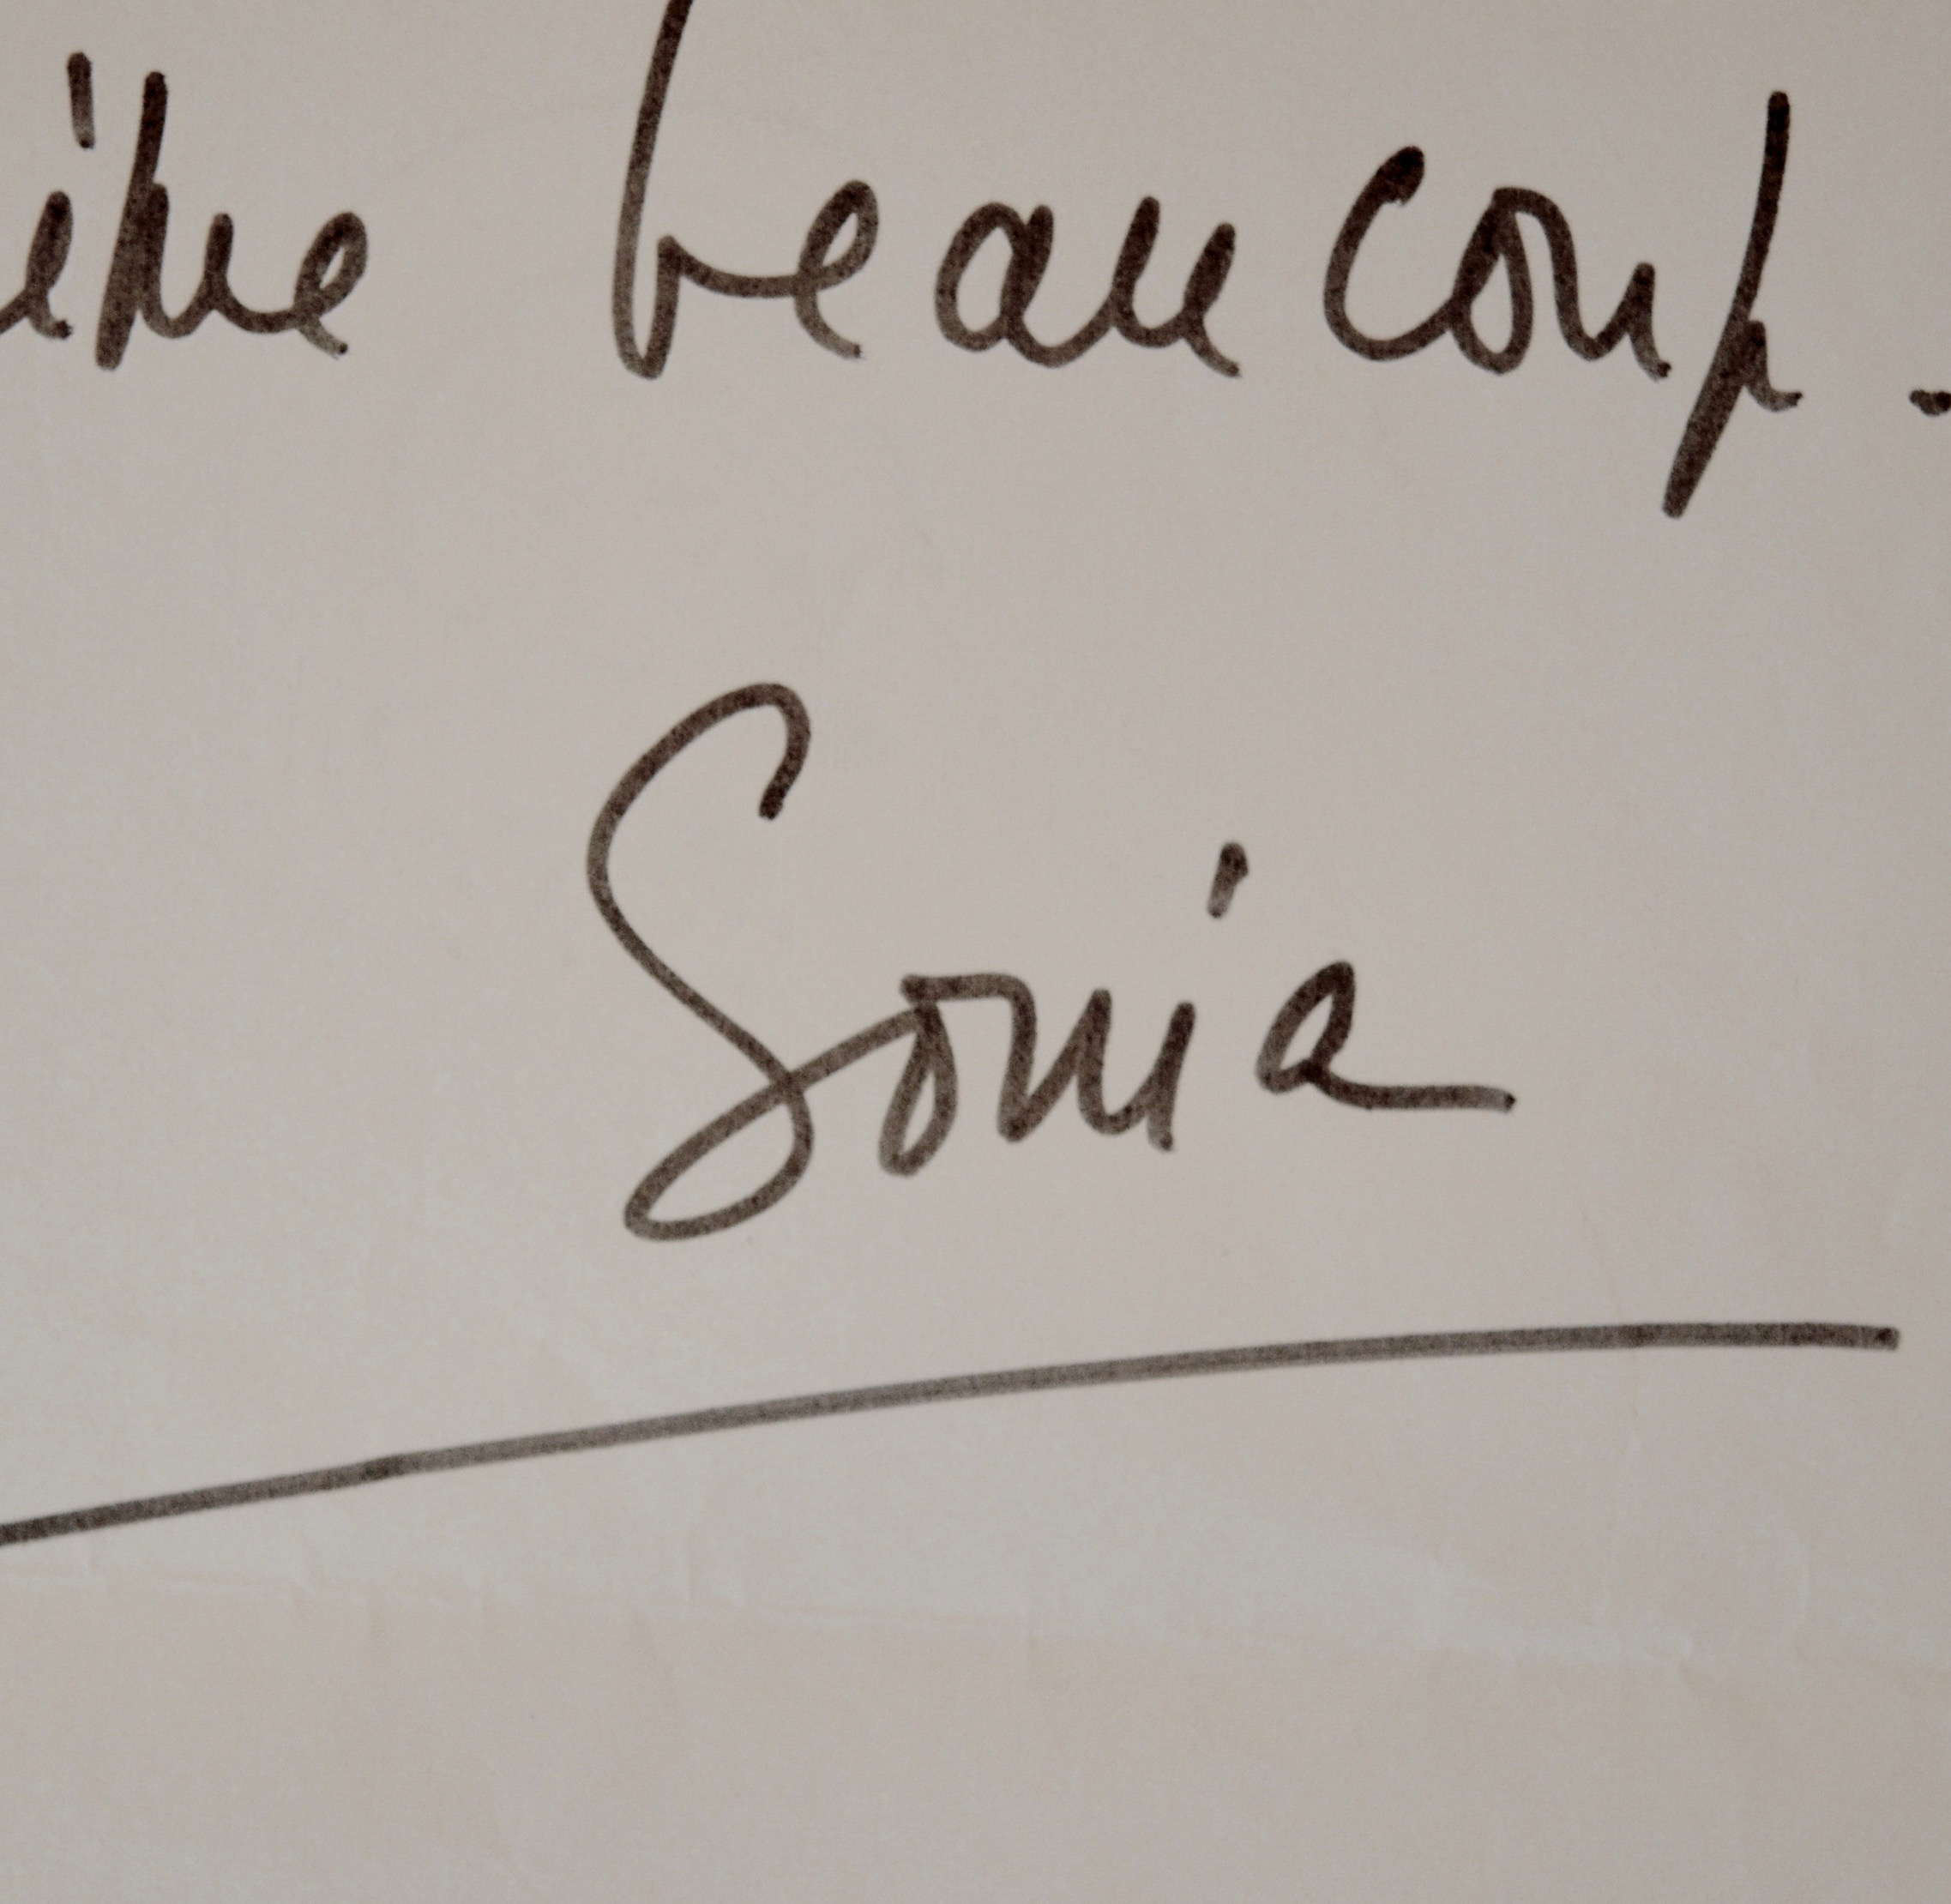 ime beaucoup.
Sonia